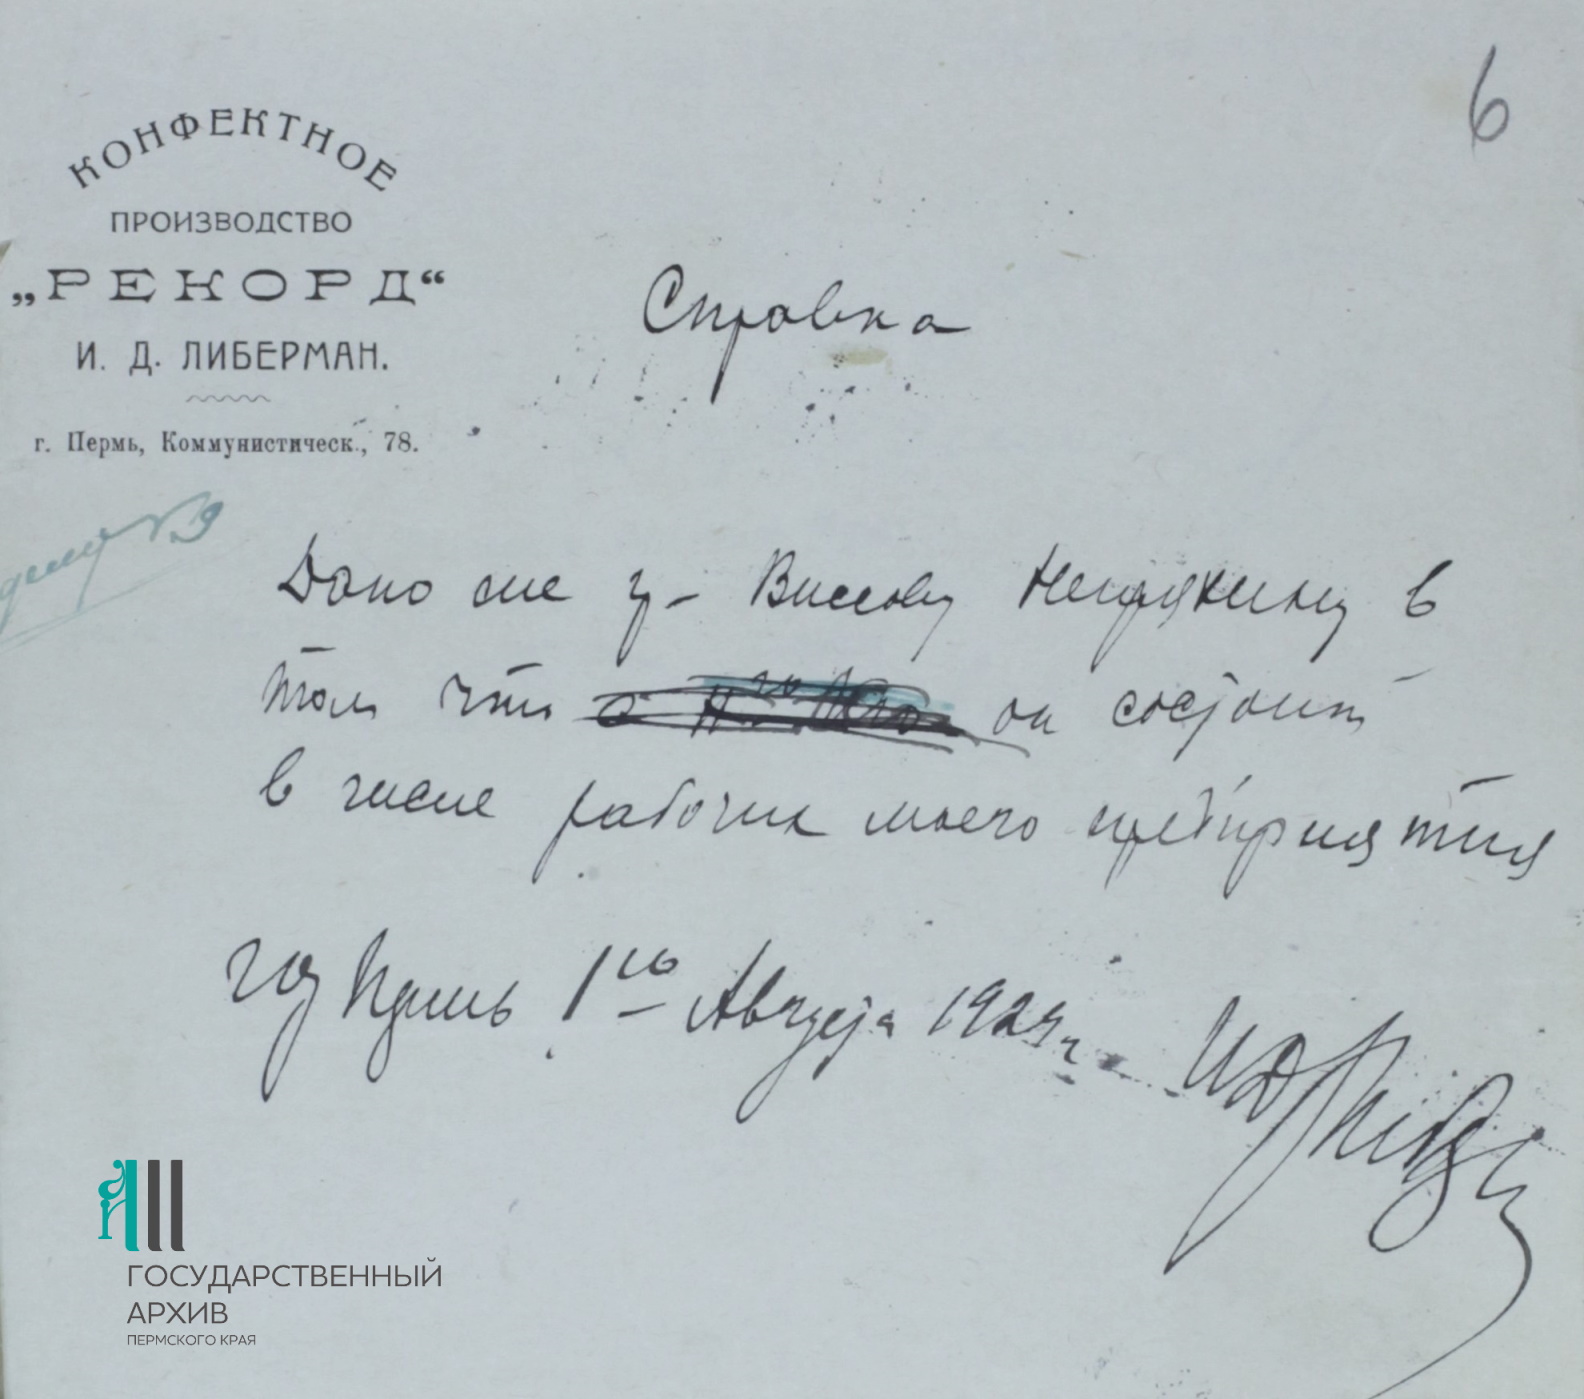 6
КОНФЕКТНОЕ
ПРОИЗВОДСТВО
„РЕКОРД“
И. Д. ЛИБЕРМАН.
г. Пермь, Коммунистическ., 78.
Справка
Дано сие гр- в
том что он состоит
в числе рабочих моего предприятия
гор Пермь 1го Августа 1924 г.
ГОСУДАРСТВЕННЫЙ
АРХИВ
ПЕРМСКОГО КРАЯ